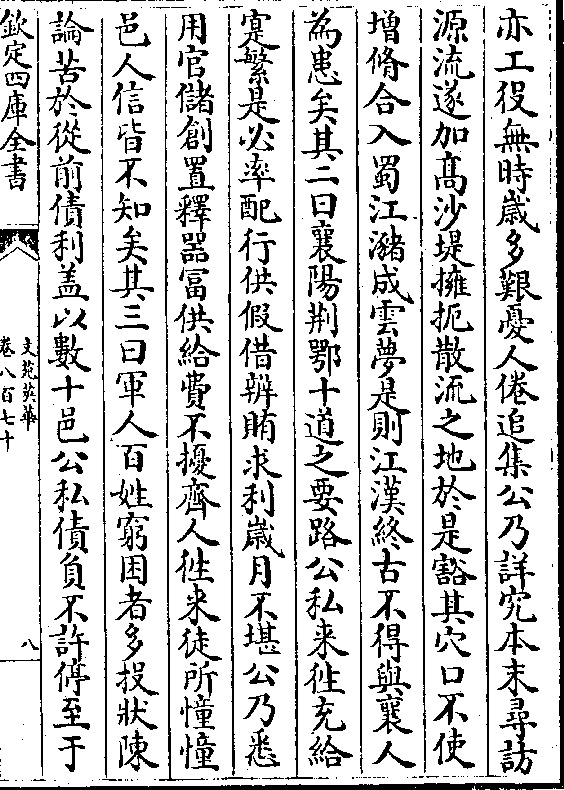 亦工役無時歲多艱憂人倦追集公乃詳究本末尋訪
源流遂加髙沙堤擁扼散流之地於是豁其穴口不使
增脩合入蜀江瀦成雲夢是則江漢終古不得與襄人
為患矣其二曰襄陽荆鄂十道之要路公私来徃充給
寔繁是必率配行供假借辨賄求利歲月不堪公乃悉
用官儲創置釋器冨供給費不擾齊人徃来徒所憧憧
邑人信皆不知矣其三曰軍人百姓窮困者多投狀陳
論苦於從前債利盖以數十邑公私債負不許停至于
欽定四庫全書
文苑英華
卷八百七十
八